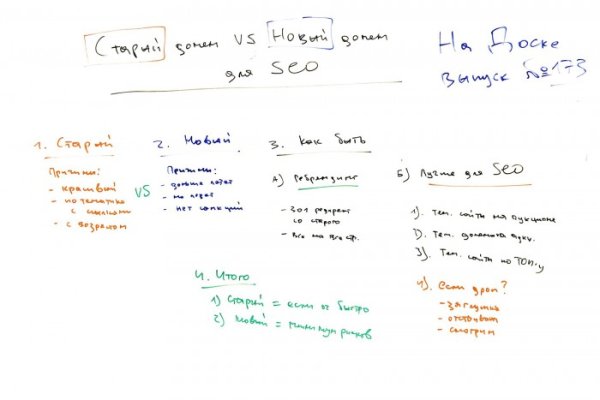 Старый домен VS Новый домен
для SEO
На Доске
выпуск №173
1. Старый
Причины:
- красивый
- по тематике
с ссылками
- с возрастом
VS
2. Новый
Причины:
- дольше
- нет санкций
3. Как быть
А) Ребрендинг
- 301 редирект
со старого
- Все на все стр.
Б) Лучше для SEO
1). Тем. сайты на аукционе
2). Тем. домены
3). Тем. сайты по ТОП-у
4). если дроп?
- заглушка
- отстойник
- смотрим
4. Итого
1) Старый = если оч быстро
2) Новый = минимум рисков